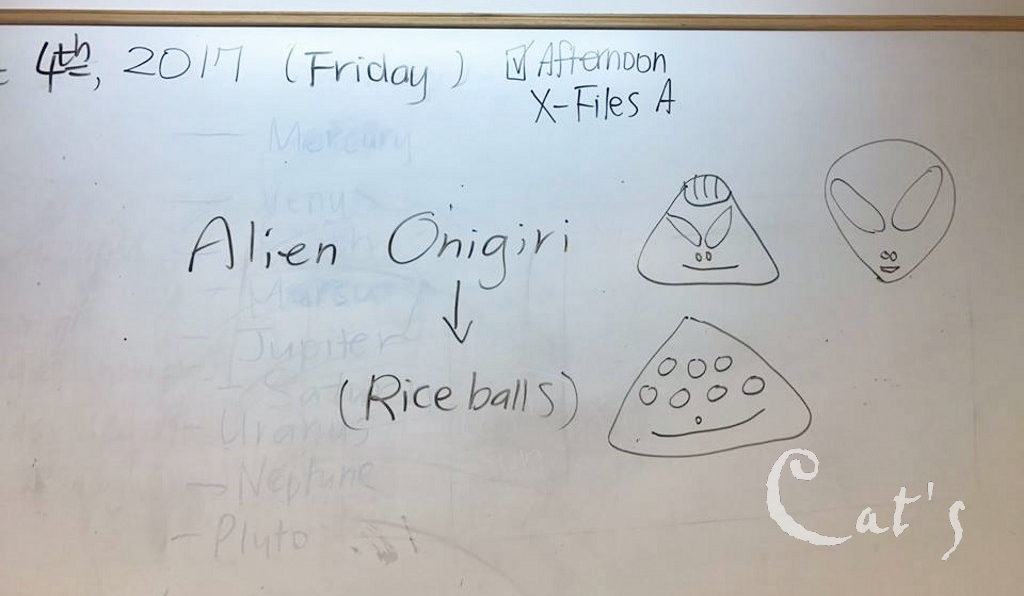 4th, 2017 (Friday) ☑ Afternoon
X-Files A
Mercury
Venus
Alien Onigiri
Mars
Jupiter
(Rice balls)
Uranus
Neptune
Pluto
Cat's